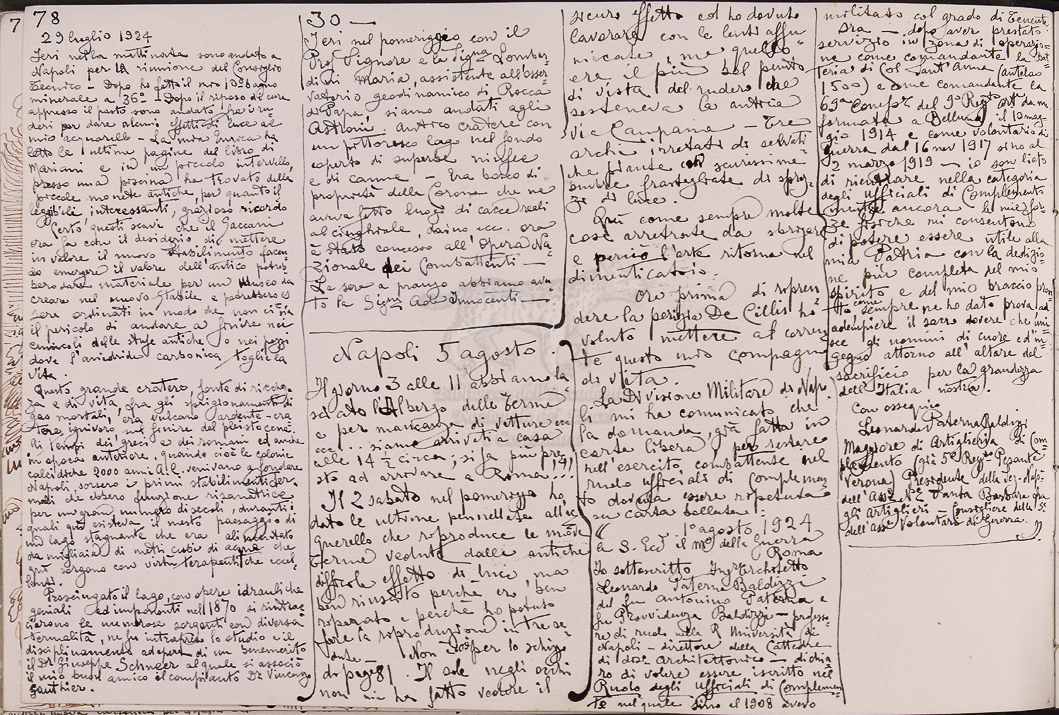 78
29 luglio 1924
Ieri nella mattinata sono andato a
Napoli per la riunione del Consiglio
Tecnico — Dopo ho fatto il mio 10° bagno
minerale a 36° — Dopo il riposo di cure
appresso il pasto sono andato fra i ru
deri per dare alcuni effetti di luce al
mio acquarello — La mia Enrica ha
letto le ultime pagine del libro di
Mariani e in un piccolo intervallo
presso una piscina ha trovato delle
piccole monete antiche, per quanto il
leggibili, interessanti, grazioso ricordo
Certo questi scavi che il Jaccani
ora fa con il desiderio di mettere
in valore il nuovo stabilimento facen
do emergere il valore dell'antico potreb
bero dare materiale per un Museo da
creare nel nuovo stabile e potrebbero es
sere ordinati in modo che non ci sia
il pericolo di andare a finire nei
cunicoli delle stufe antiche o nei pozzi
dove l'anidride carbonica toglie la
vita.
Questo grande cratere, fonte di ricchez
za e di vita, fra gli sprigionamenti di
gas mortali, era vulcano ardente — era
ignivoro sul finire del pleistocene.
Ai tempi dei greci e dei romani ed anche
in epoca anteriore, quando cioè le colonie
calcidiche 2000 anni A.C. venivano a fondare
Napoli, sorsero i primi stabilimenti ter
mali che ebbero funzione risanatrice
per un gran numero di secoli, durante i
quali qui esisteva il mesto paesaggio di
un lago stagnante che era alimentato
da migliaia di metri cubi di acqua che
qui sorgono con virtù terapeutiche eccel
lenti.
Prosciugato il lago, con opere idrauliche
geniali ed imponenti nel 1870 si rintrac
ciarono le numerose sorgenti con diversa
termalità, ne fu intrapreso lo studio e il
disciplinamento ad opera di un benemerito
il Dr. Giuseppe Schneer al quale si associò
il mio buon amico il compianto Dr Vincenzo
Gauthier.
30 —
Ieri nel pomeriggio con il
Prof Signore e la Signa Lombar
di Maria, assistente all'Osser
vatorio geodinamico di Rocca
di Papa, siamo andati agli
Astroni, antico cratere con
un pittoresco lago nel fondo
coperto di superbe ninfee
e di canne — Era bosco di
proprietà della Corona che ne
aveva fatto luogo di cacce reali
al cinghiale, daino ecc. ora
è stato concesso all'Opera Na
zionale dei Combattenti —
La sera a pranzo abbiamo avu
to la Sigra Ada Innocenti —
Napoli 5 agosto
Il giorno 3 alle 11 abbiamo la
sciato l'Albergo delle Terme
e per mancanza di vetture ecc
ecc... siamo arrivati a casa
alle 14 ½ circa; si fa più pre
sto ad arrivare a Roma...!!!
Il 2 sabato nel pomeriggio ho
dato le ultime pennellate all'ac
querello che riproduce le nuove
Terme vedute dalle antiche
difficile effetto di luce, ma
ben riuscito perchè ero ben
riposato e perchè ho potuto
fare la riproduzione in tre se
dute — Non così per lo schizzo
do pag 81. Il sole negli occhi
non mi ha fatto vedere il
sicuro effetto ed ho dovuto
lavorare con le lenti affu
micate; ma quello
era il più bel punto
di vista del rudere che
sosteneva la antica
via Campana — Tre
archi irretati di selvati
che piante di scurissime
ombre frastagliate di spraz
zi di luce.
Qui come sempre molte
cose arretrate da sbrigare
e perciò l'arte ritorna nel
dimenticatoio.
Ora prima di ripren
dere la perizia De Cillis ho
voluto mettere al corren
te questo mio compagno
di vita.
La Divisione Militare di Napo
li mi ha comunicato che
la domanda, già fatta in
carta libera, per restare
nell'esercito combattente nel
ruolo ufficiali di complemen
to dovrà essere ripetuta
su carta bollata:
1° agosto 1924
A S. Ecc. il Mo della Guerra
Roma
Io sottoscritto Ingr Architetto
Leonardo Paterna Baldizzi
del fu Antonino Paterna e
fu Provvidenza Baldizzi — professo
re di ruolo nella R Università di
Napoli — direttore della Cattedra
di Dise. Architettonico — dichia
ro di volere essere iscritto nel
Ruolo degli ufficiali di complemen
to nel quale sino al 1908 avevo
militato col grado di Tenente
Ora — dopo aver prestato
servizio in zona di operazio
ne come comandante la bat
teria di Col Sant'Anna (Antelao
1500) e come comandante la
69a Compa del 9° Regto Art da me
formata a Belluno, il 10 mag
gio 1914 e come volontario di
guerra dal 16 nov 1917 sino al
2 marzo 1919 — io son lieto
di rientrare nella categoria
degli ufficiali di Complemento
mentre ancora le mie for
ze fisiche mi consentono
di potere essere utile alla
mia Patria con la dedizio
ne più completa del mio
spirito e del mio braccio pron
to come sempre ne ho dato prova, ad
adempiere il sacro dovere che uni
sce gli uomini di cuore ed in
gegno attorno all'altare del
sacrificio per la grandezza
dell'Italia nostra.
Con ossequio
Leonardo Paterna Baldizzi
Maggiore di Artiglieria di Com
plemento (già 5° Regto Pesante
Verona) Presidente della Sez. Napoli
dell'Asse Nle Santa Barbara fra
gli Artiglieri — Consigliere della
dell'Asse Volontari di Guerra.